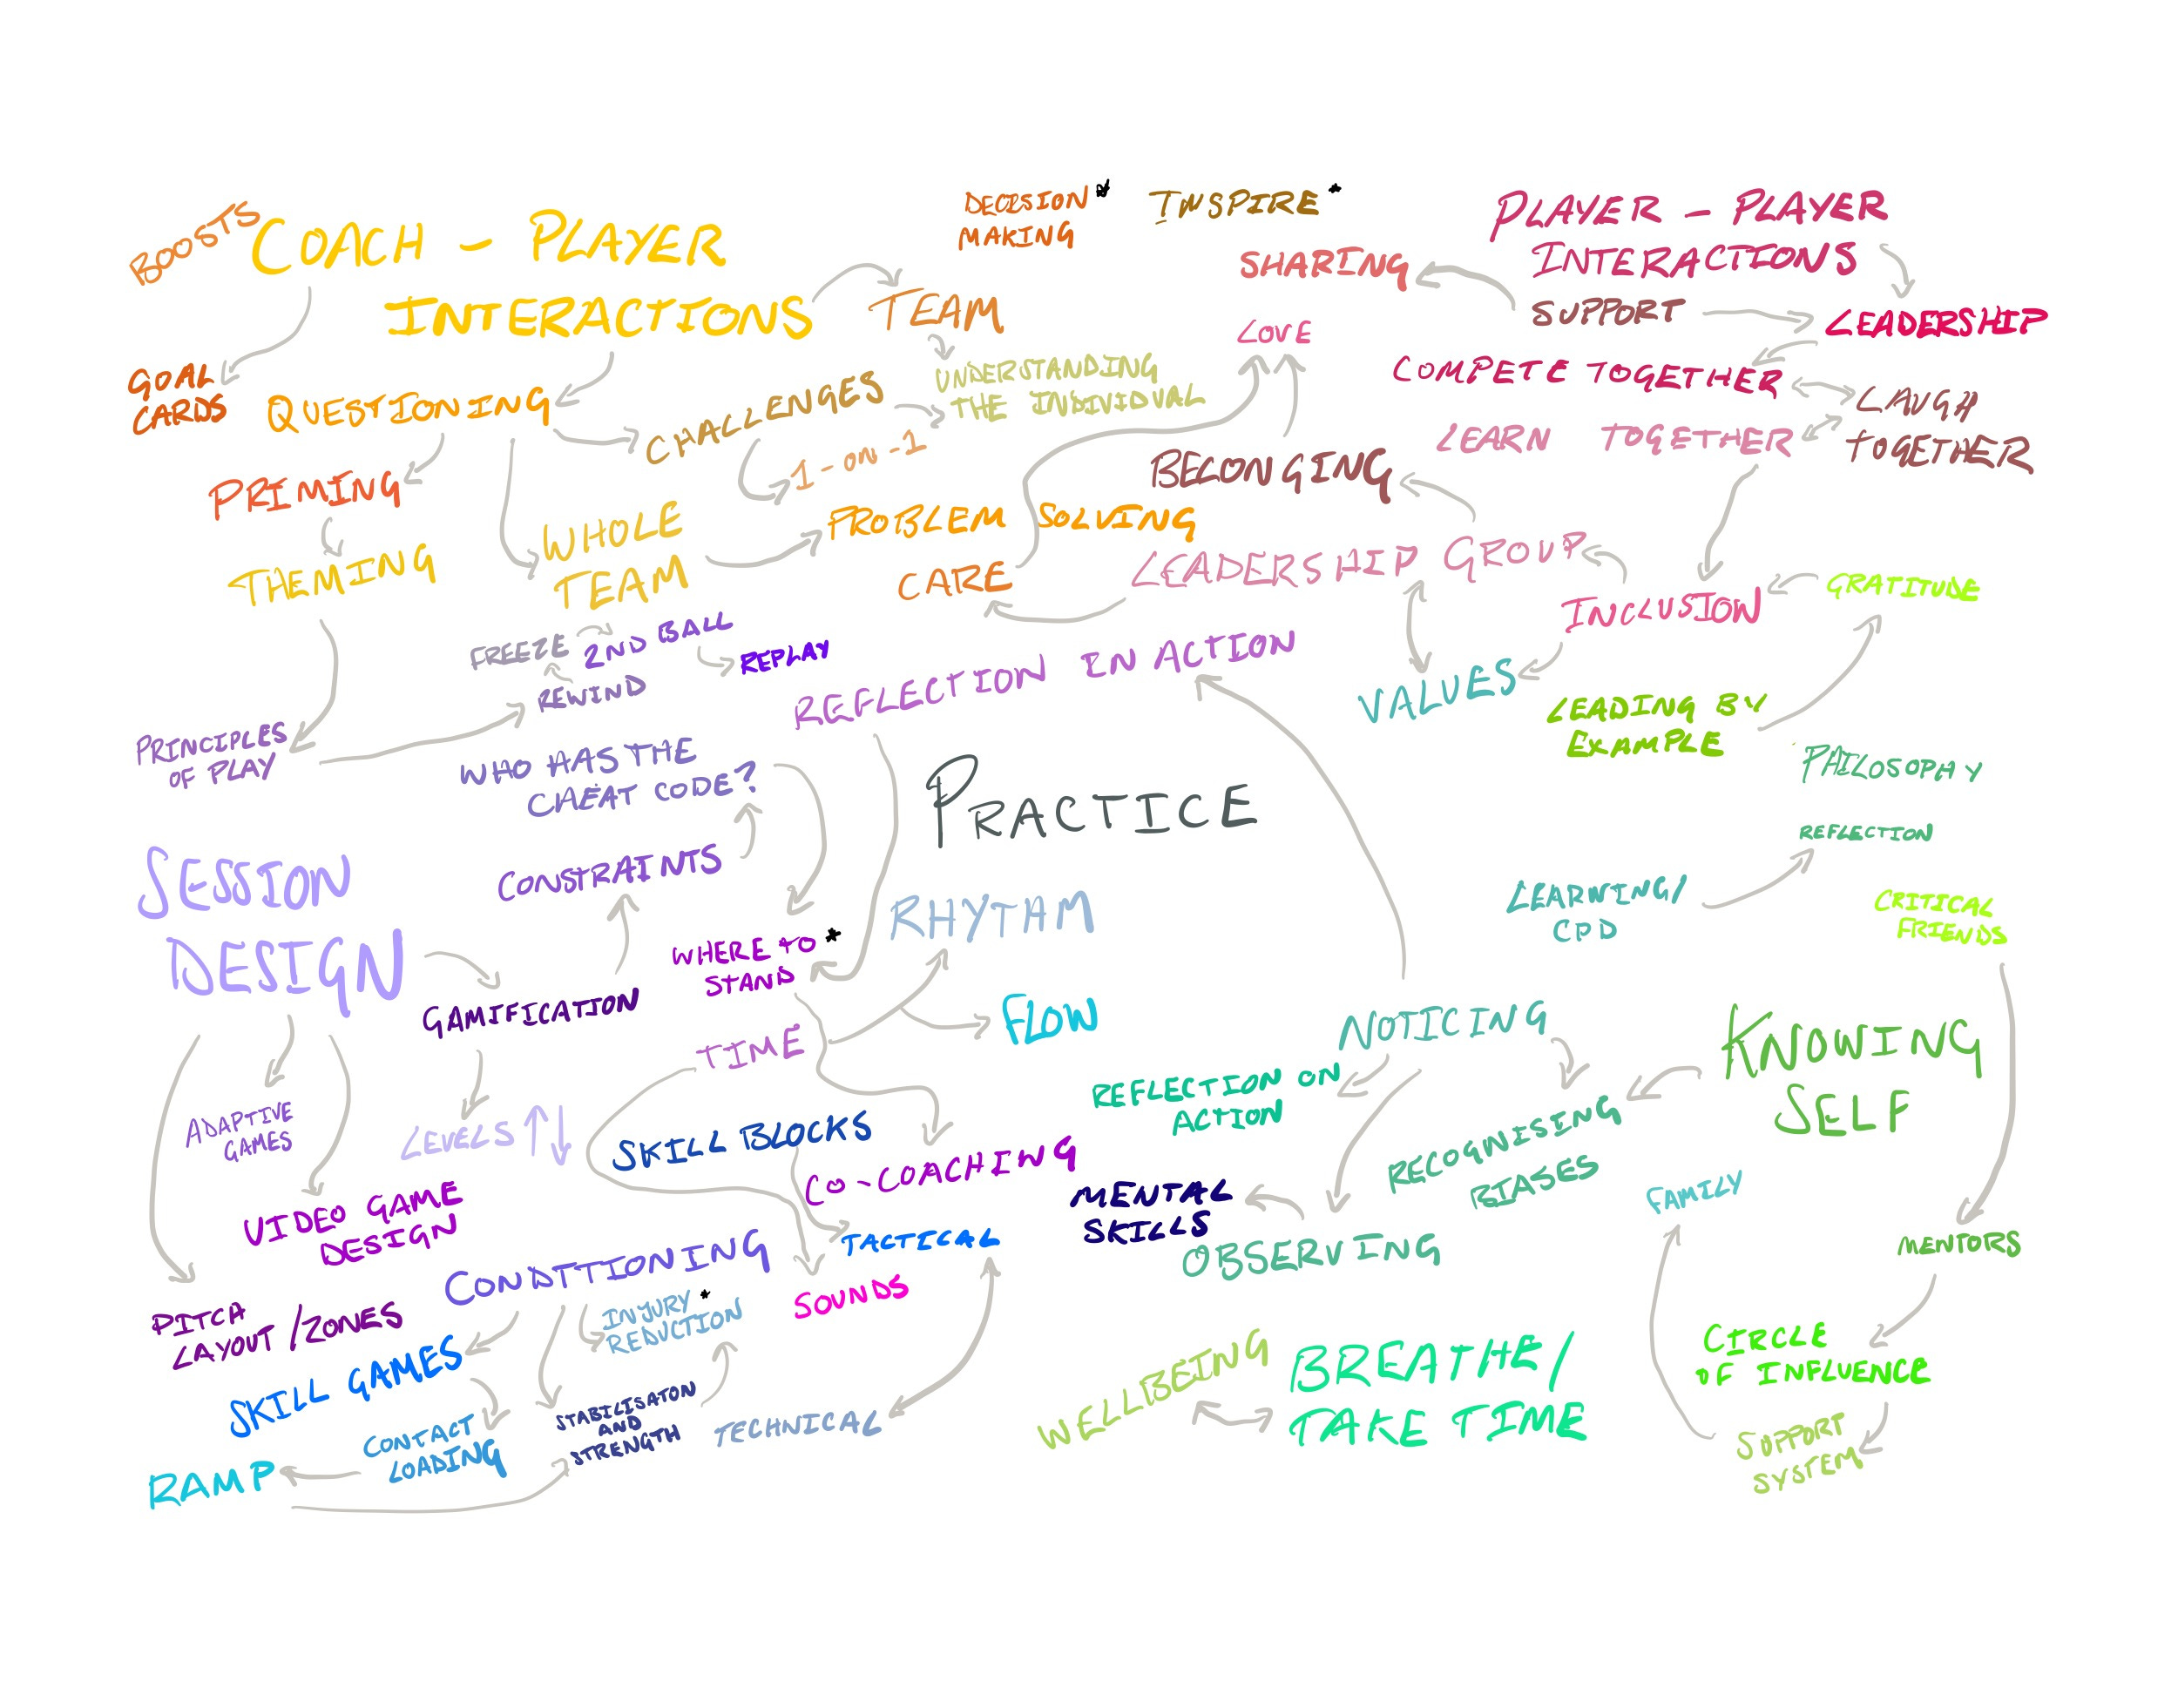 BOOSTS
COACH - PLAYER
INTERACTIONS
DECISION*
MAKING
INSPIRE*
PLAYER - PLAYER
INTERACTIONS
SHARING
TEAM
LOVE
SUPPORT
LEADERSHIP
GOAL
CARDS
QUESTIONING
CHALLENGES
UNDERSTANDING
THE INDIVIDUAL
1-ON-1
COMPETE TOGETHER
LAUGH
TOGETHER
LEARN TOGETHER
PRIMING
BELONGING
WHOLE
TEAM
PROBLEM SOLVING
THEMING
CARE
LEADERSHIP GROUP
INCLUSION
GRATITUDE
FREEZE
2ND BALL
REPLAY
REWIND
REFLECTION IN ACTION
VALUES
LEADING BY
EXAMPLE
PRINCIPLES
OF PLAY
WHO HAS THE
CHEAT CODE?
PRACTICE
PHILOSOPHY
REFLECTION
SESSION
DESIGN
CONSTRAINTS
RHYTHM
LEARNING/
CPD
CRITICAL
FRIENDS
WHERE TO*
STAND
GAMIFICATION
TIME
FLOW
NOTICING
KNOWING
SELF
REFLECTION ON
ACTION
ADAPTIVE
GAMES
LEVELS ↑↓
SKILL BLOCKS
CO-COACHING
RECOGNISING
BIASES
MENTAL
SKILLS
FAMILY
VIDEO GAME
DESIGN
TACTICAL
OBSERVING
MENTORS
CONDITIONING
SOUNDS
INJURY*
REDUCTION
PITCH
LAYOUT/ZONES
SKILL GAMES
WELLBEING
BREATHE/
TAKE TIME
CIRCLE
OF INFLUENCE
STABILISATON
AND
STRENGTH
TECHNICAL
CONTACT
LOADING
RAMP
SUPPORT
SYSTEM